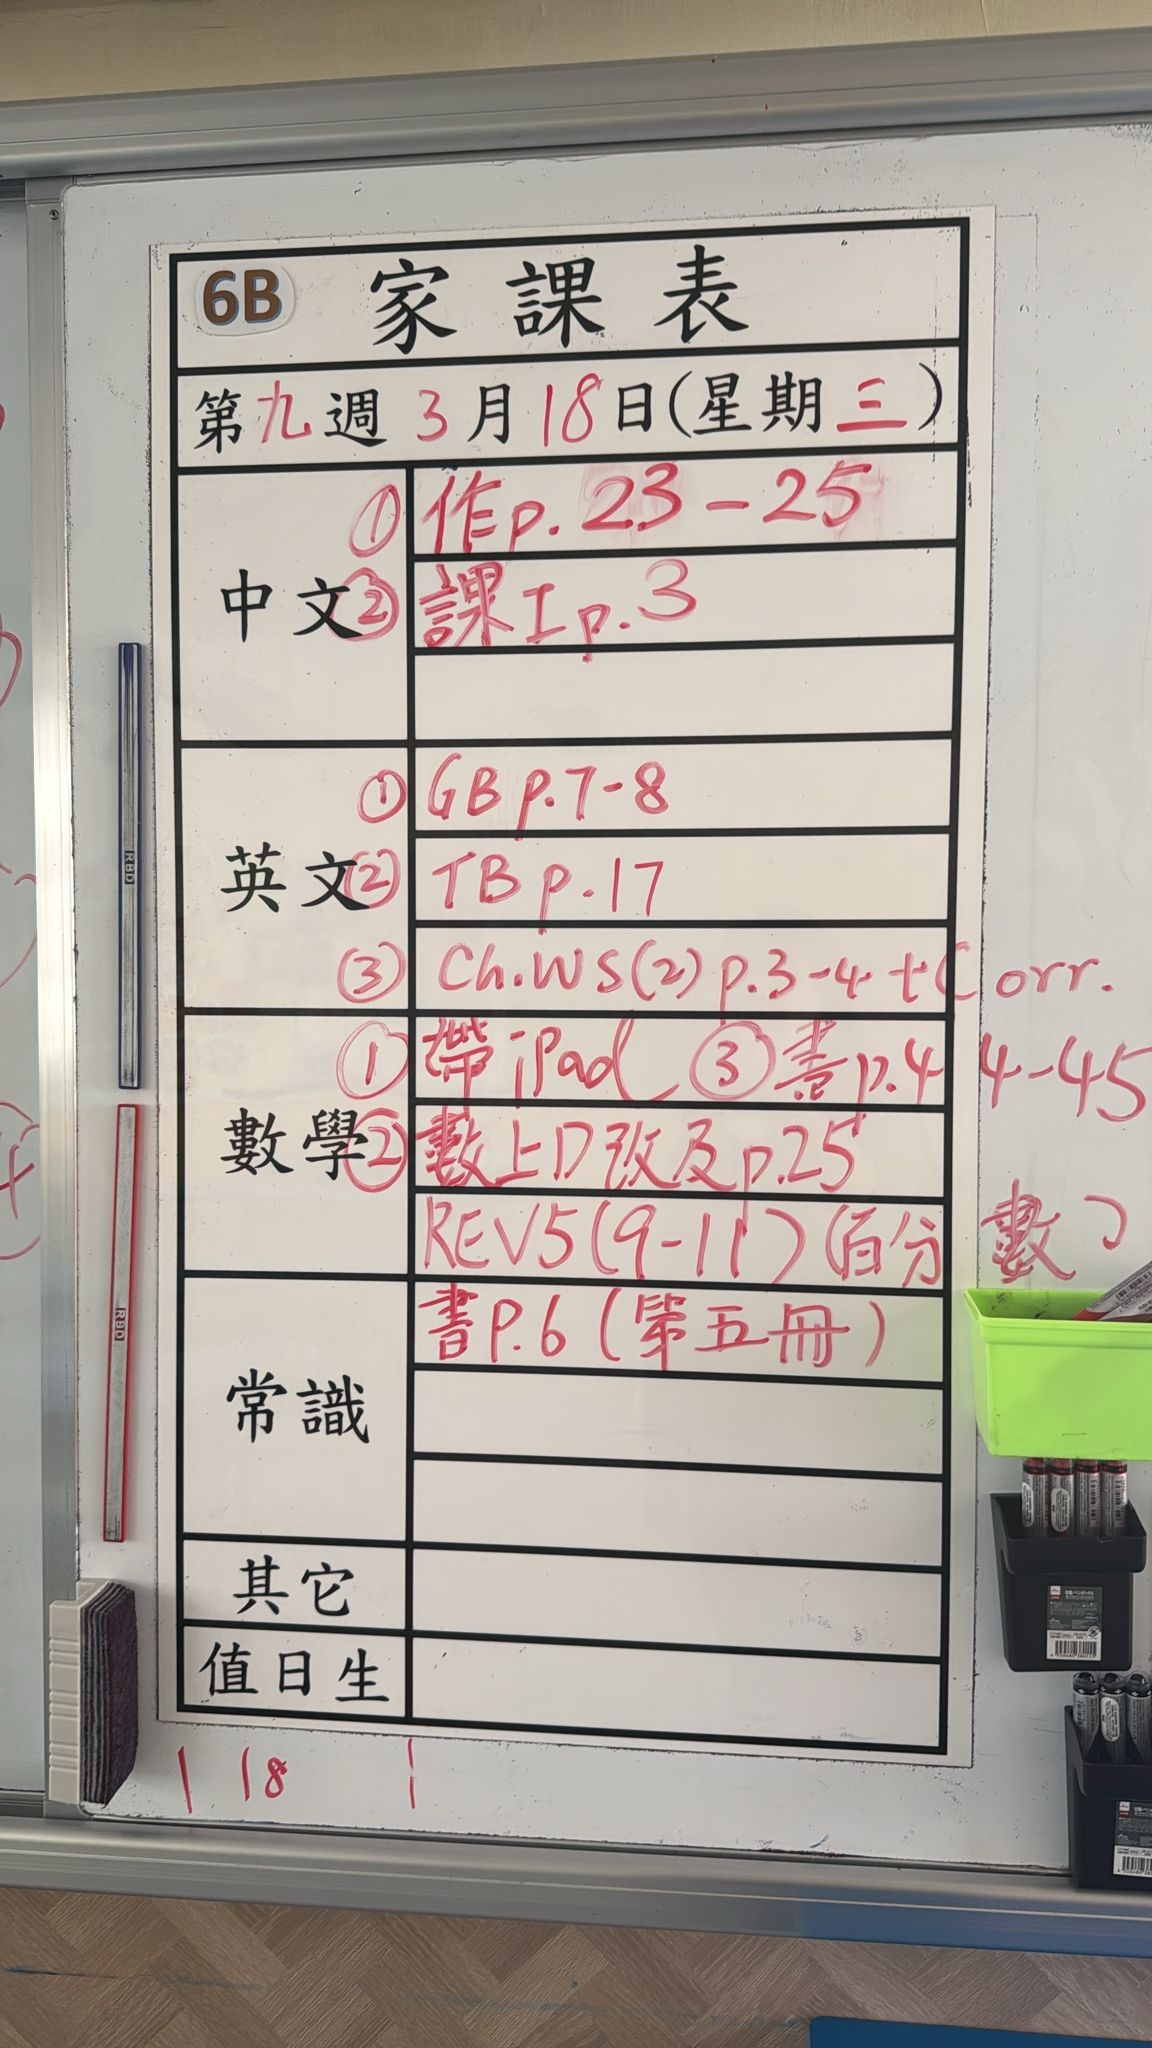 6B 家課表
第九週 3月18日(星期三)
中文
① 作p. 23-25
② 課工p. 3
英文
① GB p.7-8
② TB p.17
③ Ch.WS(2) p.3-4 + Corr.
數學
① 帶iPad ③ 書p.44-45
② 數上D改及p.25
REV5(9-11) (百分數)
常識
書P.6 (第五冊)
其它
值日生
1 18 1
RBD
RBD